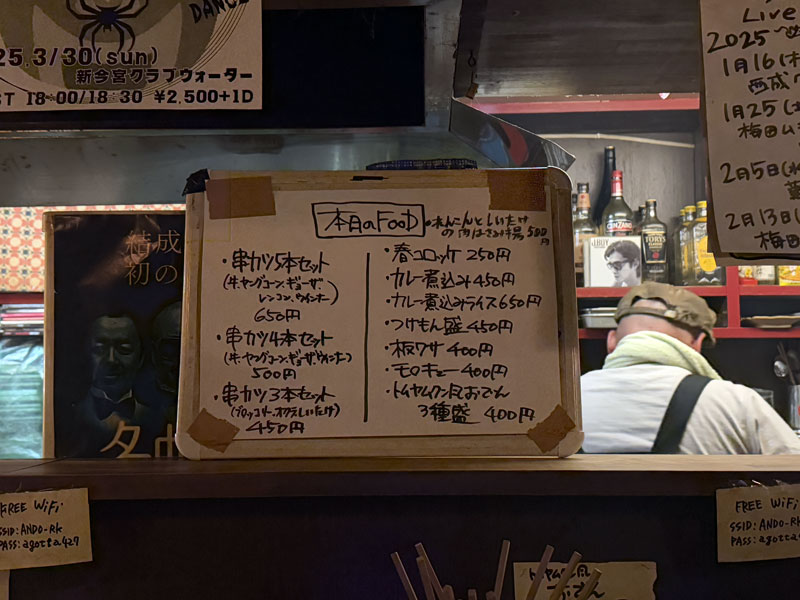 DANCE
25.3/30(sun)
新今宮クラブウォーター
ST 18:00/18:30 ¥2,500+1D
Live
2025~
1月16(木
西成
1月25(土
梅田ム
2月5日(水
2月13日(木
梅田
結成
初の
本日のFOOD
・れんこんとしいたけ
の肉はさみ揚 500円
・串カツ5本セット
(牛.ヤングコーン.ギョーザ.
レンコン.ウインナー)
650円
・串カツ4本セット
(牛.ヤングコーン.ギョーザ.ウインナー)
500円
・串カツ3本セット
(ブロッコリー.オクラ.しいたけ)
450円
・春コロッケ 250円
・カレー煮込み 450円
・カレー煮込みライス 650円
・つけもん盛 450円
・板ワサ 400円
・モロキュー 400円
・トムヤムクン風おでん
3種盛 400円
CINZANO
FREE WiFi
SSID:ANDO-RK
PASS:agotta427
FREE WiFi
SSID:ANDO-R
PASS:agotta4
トムヤムクン風
おでん